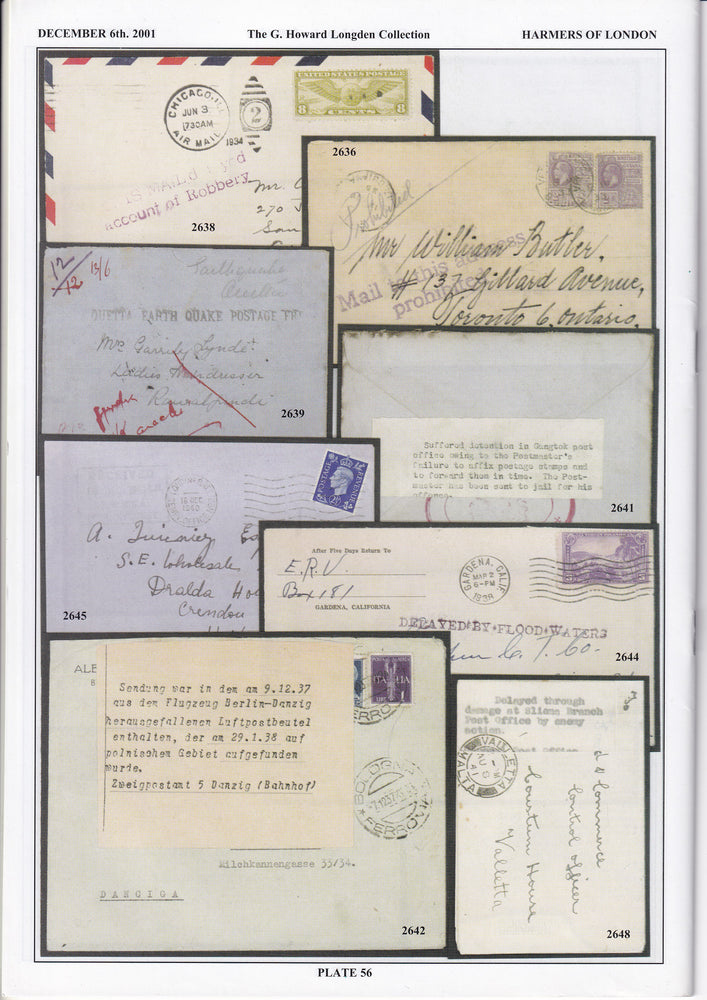 DECEMBER 6th. 2001
The G. Howard Longden Collection
HARMERS OF LONDON
CHICAGO, ILL.
JUN 3
730AM
1934
AIR MAIL
2
UNITED STATES POSTAGE
8 CENTS 8
IS MAIL d yed
account of Robbery
Mr.
270
San
2638
2636
Prohibited
Mail to this address
prohibited
Mr William Butler,
# 137 Gillard Avenue,
Toronto 6, Ontario.
12/12
13/6
Earthquake
QUETTA EARTH QUAKE POSTAGE FR
Mrs
Ladies Hairdresser
Rawalpindi
Karachi
2639
Suffered detention in Gangtok post
office owing to the Postmaster's
failure to affix postage stamps and
to forward them in time. The Post-
master has been sent to jail for his
offence.
2641
16 DEC
1940
POSTAGE REVENUE
2½
A.
S.E. Wholesale
Dralda Ho
Crendon
2645
After Five Days Return To
E.R.V.
Box 181
GARDENA, CALIFORNIA
GARDENA, CALIF.
MAR 2
6-PM
1938
3
DELAYED BY FLOOD WATERS
C. T. Co.
2644
ALE
8
Sendung war in dem am 9.12.37
aus dem Flugzeug Berlin-Danzig
herausgefallenen Luftpostbeutel
enthalten, der am 29.1.38 auf
polnischem Gebiet aufgefunden
wurde.
Zweigpostamt 5 Danzig (Bahnhof)
ITALIA
FERRO
BOLOGNA
7.12.37.15
FERROV
Milchkannengasse 33/34.
DANCIGA
2642
Delayed through
damage at Sliema Branch
Post Office by enemy
action.
Post Office
VALLETTA
MALTA
AU 6
41
Commerce
Control Officer
Custum House
Valletta
2648
PLATE 56